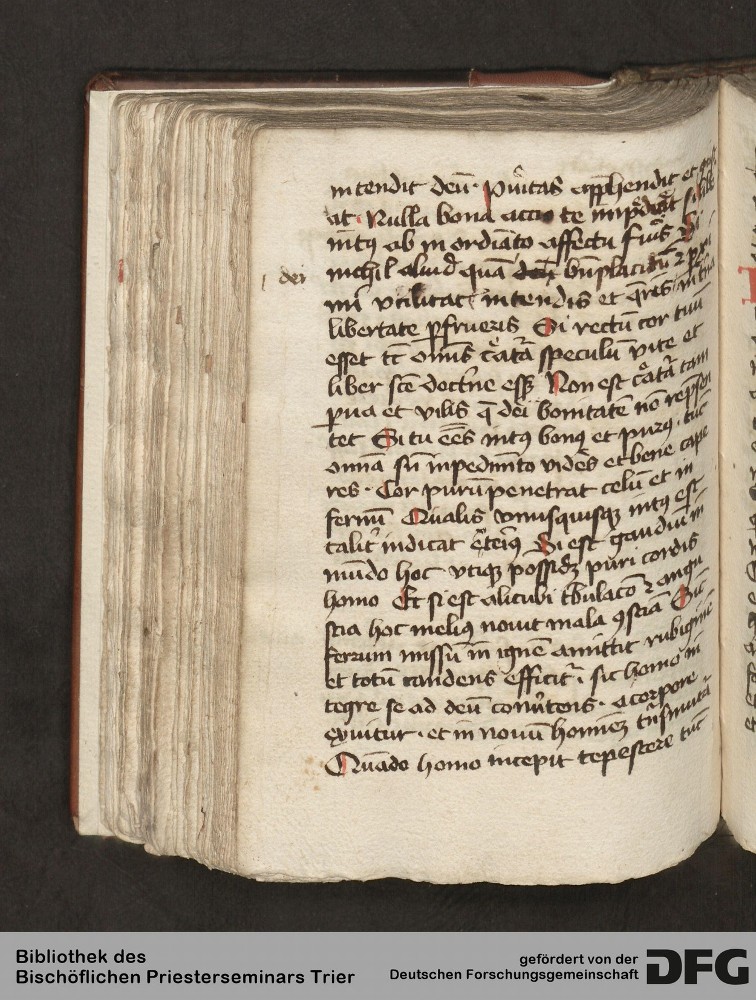 intendit deū · pu͛itas app̄hendit et gust
at · Nulla bona actio te imp̄diet si libe
int9 ab in ordi͛ato affectu fuīs Si
nichil aliud̛ quā dei bn̄placitū et pxi
dei
mi vtilitatē intendis et q̄ris int͛na
libertate p̱frueris Si rectū cor tuū
esset tc̄ om̄is c͛atā speculū vite et
liber sc̄e doctͥne esset Non est c͛atā tam
parua et vilis q̄ dei bonitatē nō rep̄sen
tet Si tu eēs int9 bon9 et pur9 · tūc
omīa sn̄ inpedimīto vidēs et bene cape
res · Cor purū penetrat celū et in
fernū Qualis vnusquisq3 int9 est
talit͛ iudicat ext͛ei9 Si est gaudiū in
mūdo hoc vtiq3 possid3 puri cordis
homo Et si est alicubi tͥbulacō et angu
stia hoc meli9 nouit mala 9sciā Sic̄
ferrum missū in ignē amittit rubiginē
et totū candens efficit͛ · sic homo in
tegre se ad deū conu͛tens · a corpore
exuitur · et in nouū hominē tͣnsmutat͛
Quādo homo incepit tepescere tūc
Bibliothek des
Bischöflichen Priesterseminars Trier
gefördert von der
Deutschen Forschungsgemeinschaft
DFG